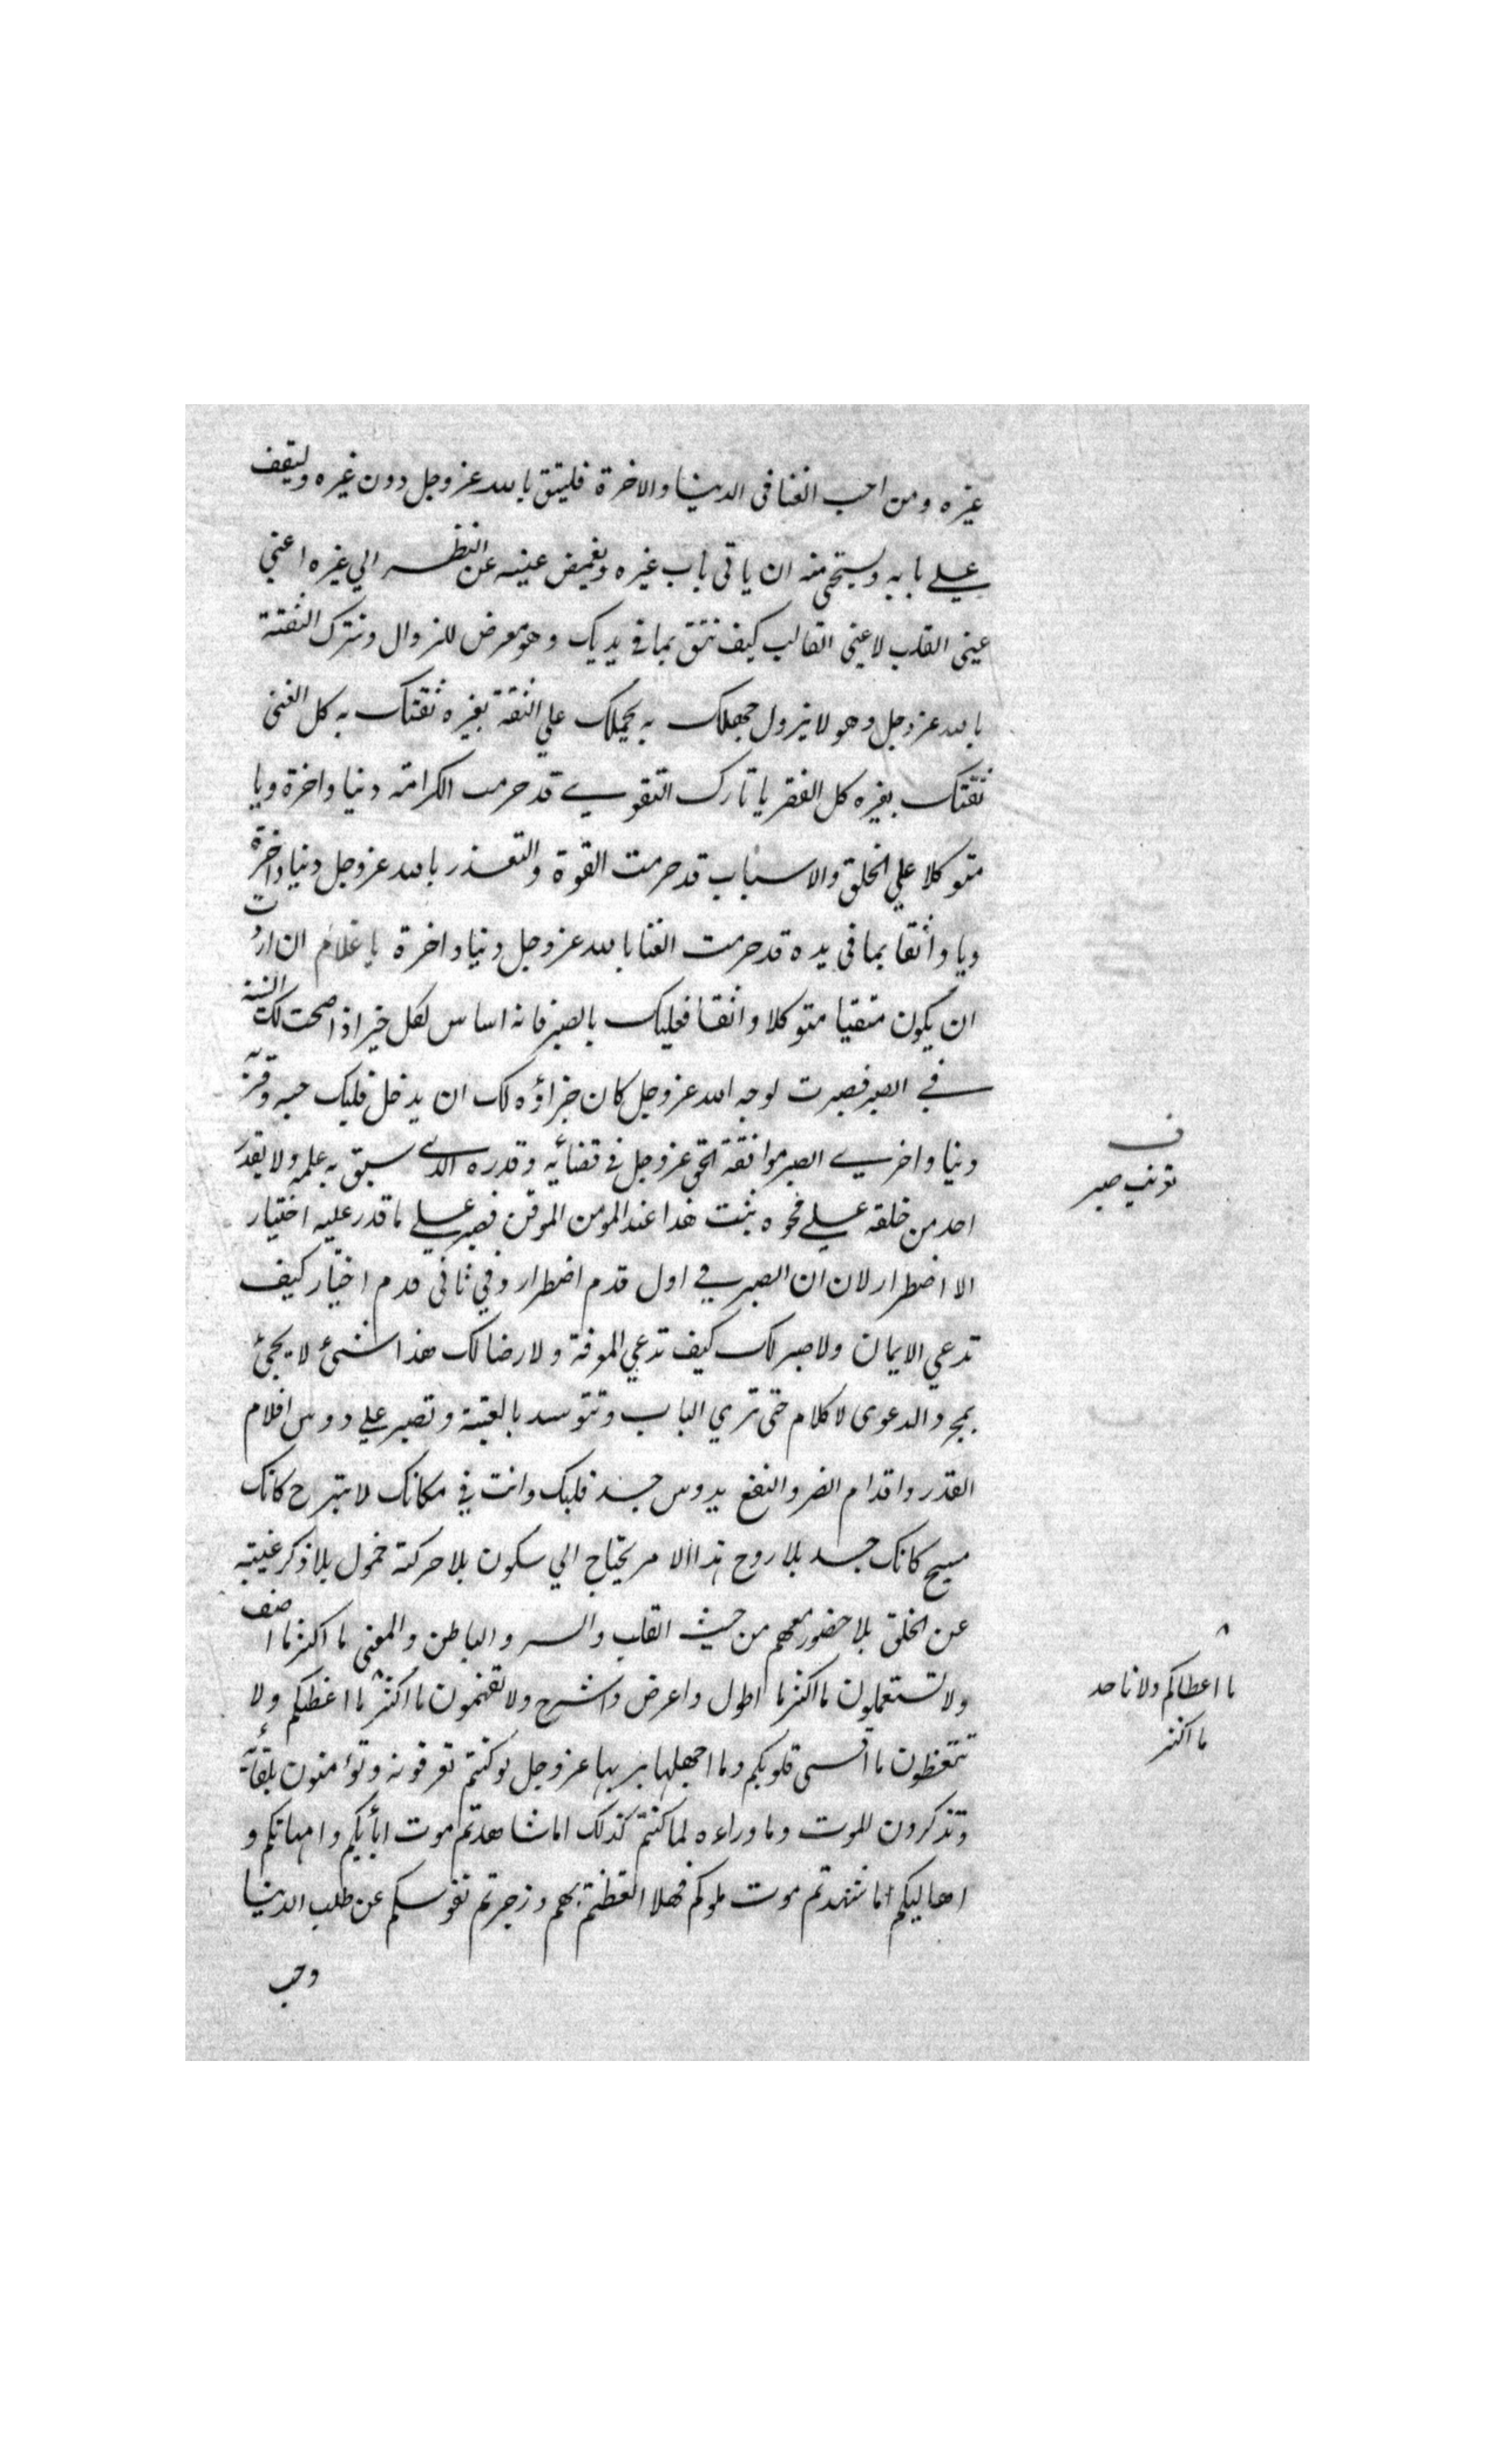 غيره ومن احب الغنا فى الدينا والاخرة فليثق بالله عز وجل دون غيره وليقف
علے بابه ويستحي منه ان ياتى باب غيره ويغمض عينيه عن النظر الي غيره اعني
عينى القلب لا عينى القالب كيف تثق بما في يديك وهو معرض للزوال وتترك الثقة
بالله عز وجل وهو لا يزول جهلك به يحملك علي الثقة بغيره ثقتك به كل الغنى
ثقتك بغيره كل الفقر يا تارك التقوے قد حرمت الكرامة دنيا واخرة ويا
متوكلا علي الخلق والاسباب قد حرمت القوة والتعذر بالله عز وجل دنيا واخرة
ويا واثقا بما فى يده قد حرمت الغنا بالله عز وجل دنيا واخرة يا غلام ان اردت
ان يكون متقيا متوكلا واثقا فعليك بالصبر فانه اساس لكل خير اذا صحت لك النية
في الصبر فصبرت لوجه الله عز وجل كان جزاؤه لك ان يدخل قلبك حبه وقربه
دنيا واخرے الصبر موافقة الحق عز وجل في قضائه وقدره الذے سبق به علمه ولا يقدر
احد من خلقه علے محوه ثبت هذا عند المومن الموقن فصبر علے ما قدر عليه اختيار
الا اضطرار لان ان الصبر في اول قدم اضطرار وفي ثانى قدم اختيار كيف
تدعي الايمان ولا صبر لك كيف تدعي المعرفة ولا رضا لك هذا شئ لا يجئ
بمجرد الدعوى لا كلام حتى تري الباب وتتوسد بالعتبة وتصبر علي دوس اقلام
القدر واقدام الضر والنفع يدوس جسد قلبك وانت في مكانك لا تبرح كانك
مسيح كانك جسد بلا روح هذا الامر يحتاج الي سكون بلا حركة خمول بلا ذكر غيبة
عن الخلق بلا حضور معهم من حيث القلب والسر والباطن والمعنى ما اكثر ما اصف
ولا تستعملون ما اكثر ما اطول واعرض واشرح ولا تفهمون ما اكثر ما اعظكم ولا
تتعظون ما اقسى قلوبكم وما اجهلها بربها عز وجل لو كنتم تعرفونه وتؤمنون بلقائه
وتذكرون للموت وما وراءه لما كنتم كذلك اما شاهدتم موت ابائكم وامهاتكم و
اهاليكم اما شهدتم موت ملوككم فهلا اتعظتم بهم وزجرتم نفوسكم عن طلب الدنيا
وحب
ف
تعريف صبر
ما اعطاكم ولا ناخذ
ما اكثر